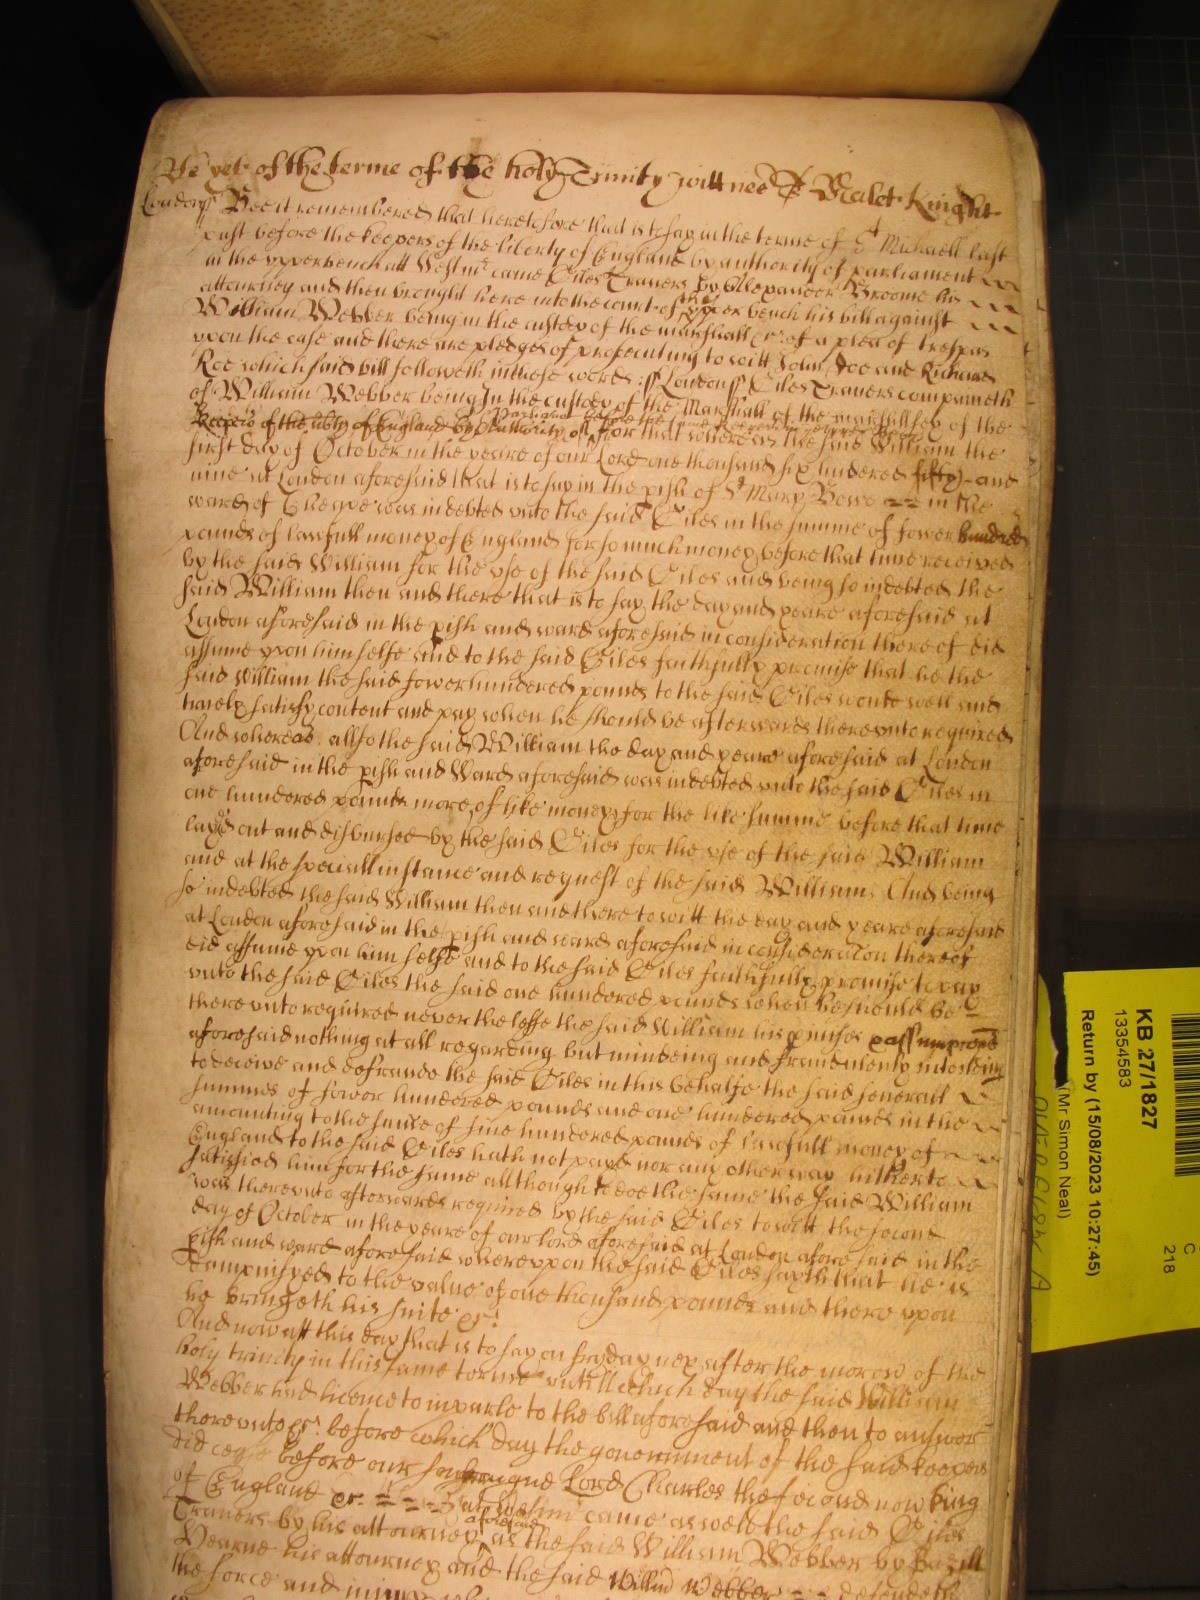 As yet of the terme of the holy Trinity wittnes T Malet Knight
London ss Bee it remembered that heretofore that is to say in the terme of St Michaell last
past before the keepers of the liberty of England by authority of parliament
in the vpper bench att Westmr came Giles Travers by Alexander Broome his
attourney and then brought here into the court of the vpper bench his bill against
William Webber being in the custody of the marshall &c of a plea of trespas
vpon the case and there are pledges of prosecuting to witt John Doe and Richard
Roe which said bill followeth in these words ss London ss Giles Travers complaineth
of William Webber being In the custody of the Marshall of the marshallsey of the
Keepers of the libty of England by Authority of for that whereas the said William the
first day of October in the yeare of our Lord one thousand six hundered fifty and
nine at London aforesaid that is to say in the pish of St Mary Bowe in the
ward of Cheape was indebted vnto the said Giles in the summe of fower hundred
pounds of lawfull money of England for so much money before that time received
by the said William for the vse of the said Giles and being so indebted the
said William then and there that is to say the day and yeare aforesaid at
London aforesaid in the pish and ward aforesaid in consideration there of did
assume vpon himselfe and to the said Giles faithfully promise that he the
said William the said fower hundered pounds to the said Giles would well and
truely satisfy content and pay when he should be afterwards therevnto required
And whereas allso the said William the day and yeare aforesaid at London
aforesaid in the pish and Ward aforesaid was indebted vnto the said Giles in
one hundered pounds more of like money for the like summe before that time
layd out and disbursed by the said Giles for the vse of the said William
and at the speciall instance and request of the said William And being
so indebted the said William then and there to witt the day and yeare aforesaid
at London aforesaid in the pish and ward aforesaid in consideration thereof
did assume vpon him selfe and to the said Giles faithfully promise to pay
vnto the said Giles the said one hundered pounds when he should be
there vnto required never the lesse the said William his pmises
aforesaid nothing at all regarding but mindeing and fraudulently intending
to deceive and defraude the said Giles in this behalfe the said severall
summes of fower hundered pounds and one hundered pounds in the
amounting to the summe of five hundered pounds of lawfull money of
England to the said Giles hath not payd nor any other way hitherto
satisfied him for the same allthough to doe the same the said William
was therevnto afterwards required by the said Giles to witt the second
day of October in the yeare of our lord aforesaid at London aforesaid in the
pish and ward aforesaid where vpon the said Giles sayth that he is
dampnifyed to the value of one thousand pounds and there vpon
he bringeth his suite &c
And now att this day that is to say on fryday next after the morow of the
holy trinity in this same terme vntill which day the said William
Webber had licence to imparle to the bill aforesaid and then to answer
therevnto &c before which day the government of the said keepers
did cease before our soveraigne Lord Charles the second now king
of England &c at Westmr came as well the said Giles
Travers by his attourney aforesaid as the said William Webber by Bazill
Hearne his attourney and the said William Webber defendeth
the force and iniury
KB 27/1827
13354583
Return by (15/08/2023 10:27:45)
(Mr Simon Neal)
C
218